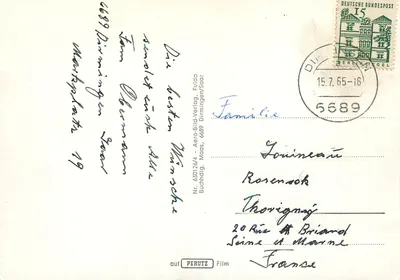 Die besten Wünsche
sendet euch Alle
Fam Obermann
6689 Dirmingen Saar
Marktplatz 19
Nr. 650126/4 - Aero-Bild-Verlag, Fulda
Buchhdlg. Maas, 6689 Dirmingen/Saar
DEUTSCHE BUNDESPOST
15
15.7.65-16
6689
Familie
Rosensok
Thorigny
20 Rue A Briand
Seine et Marne
Franse
auf PERUTZ Film